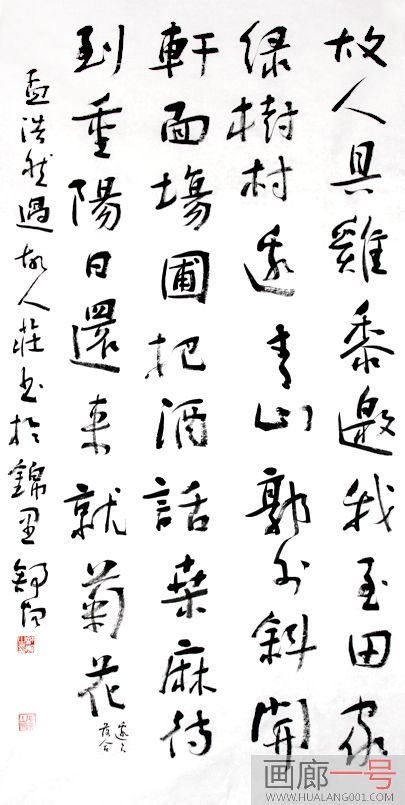 故人具雞黍邀我至田家
绿樹村邊青山郭外斜開
軒面場圃把酒話桑麻待
到重陽日還来就菊花
邊下
落合
孟浩然過故人莊书於錦里舒
画廊一号
WWW.HUALANG001.COM